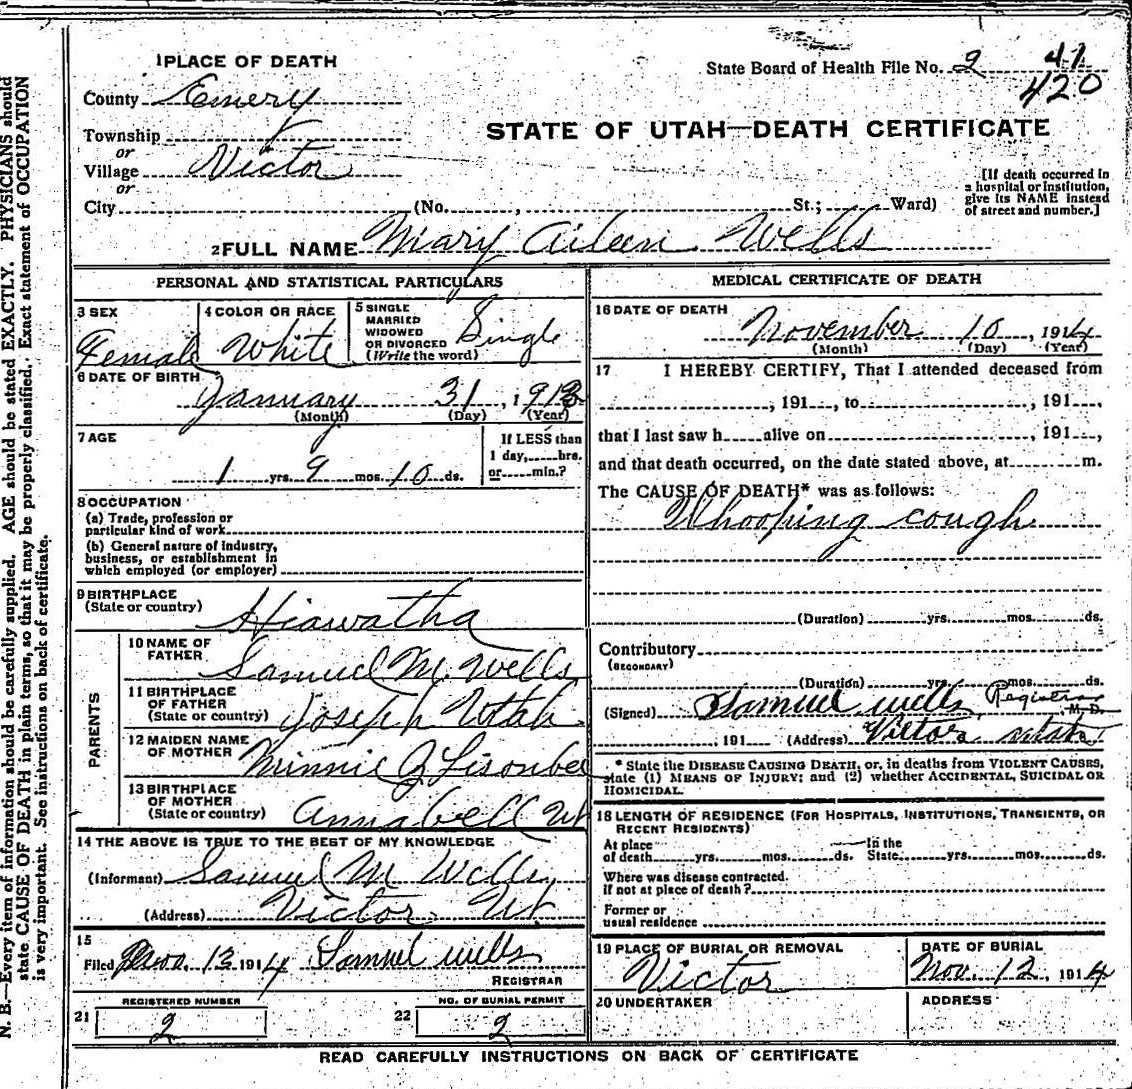 1 PLACE OF DEATH
State Board of Health File No. 2 41
420
County Emery
Township
or
Village Victor
or
City (No. , St.; Ward)
STATE OF UTAH—DEATH CERTIFICATE
[If death occurred in
a hospital or institution,
give its NAME instead
of street and number.]
2 FULL NAME Mary Aileen Wells
PERSONAL AND STATISTICAL PARTICULARS
3 SEX
Female
4 COLOR OR RACE
White
5 SINGLE
MARRIED
WIDOWED
OR DIVORCED
(Write the word)
Single
6 DATE OF BIRTH
January 31, 1913
(Month) (Day) (Year)
7 AGE
1 yrs. 9 mos. 10 ds.
If LESS than
1 day, hrs.
or min.?
8 OCCUPATION
(a) Trade, profession or
particular kind of work
(b) General nature of industry,
business, or establishment in
which employed (or employer)
9 BIRTHPLACE
(State or country) Hiawatha
PARENTS
10 NAME OF
FATHER Samuel M. Wells
11 BIRTHPLACE
OF FATHER
(State or country) Joseph Utah
12 MAIDEN NAME
OF MOTHER Minnie J Lisonbee
13 BIRTHPLACE
OF MOTHER
(State or country) Annabell Ut
14 THE ABOVE IS TRUE TO THE BEST OF MY KNOWLEDGE
(Informant) Samuel M Wells
(Address) Victor Ut
15
Filed Nov. 13 1914 Samuel Wells
REGISTRAR
REGISTERED NUMBER
21 2
NO. OF BURIAL PERMIT
22 2
MEDICAL CERTIFICATE OF DEATH
16 DATE OF DEATH
November 10, 1914
(Month) (Day) (Year)
17 I HEREBY CERTIFY, That I attended deceased from
, 191 , to , 191 ,
that I last saw h alive on , 191 ,
and that death occurred, on the date stated above, at m.
The CAUSE OF DEATH* was as follows:
Whooping cough
(Duration) yrs. mos. ds.
Contributory
(SECONDARY)
(Duration) yrs. mos. ds.
(Signed) Samuel Wells Registrar M.D.
, 191 (Address) Victor Utah
* State the DISEASE CAUSING DEATH, or, in deaths from VIOLENT CAUSES,
state (1) MEANS OF INJURY; and (2) whether ACCIDENTAL, SUICIDAL OR
HOMICIDAL.
18 LENGTH OF RESIDENCE (FOR HOSPITALS, INSTITUTIONS, TRANSIENTS, OR
RECENT RESIDENTS)
At place In the
of death yrs. mos. ds. State yrs. mos. ds.
Where was disease contracted.
if not at place of death?
Former or
usual residence
19 PLACE OF BURIAL OR REMOVAL
Victor
DATE OF BURIAL
Nov. 12, 1914
20 UNDERTAKER
ADDRESS
READ CAREFULLY INSTRUCTIONS ON BACK OF CERTIFICATE
N. B.—Every item of information should be carefully supplied. AGE should be stated EXACTLY. PHYSICIANS should
state CAUSE OF DEATH in plain terms, so that it may be properly classified. Exact statement of OCCUPATION
is very important. See instructions on back of certificate.